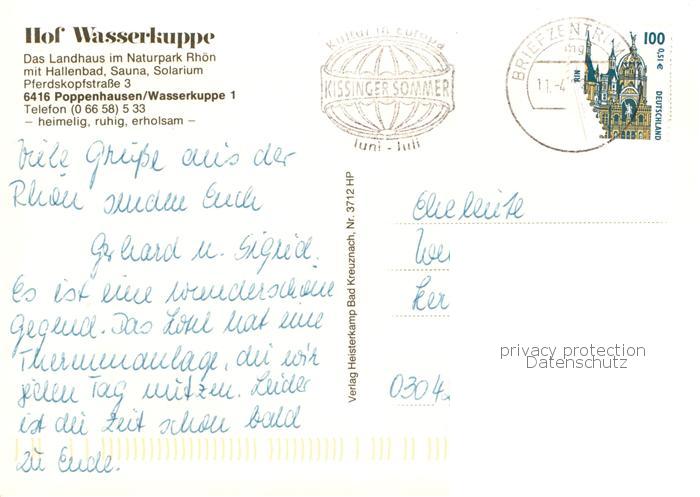 Hof Wasserkuppe
Das Landhaus im Naturpark Rhön
mit Hallenbad, Sauna, Solarium
Pferdskopfstraße 3
6416 Poppenhausen/Wasserkuppe 1
Telefon (0 66 58) 5 33
– heimelig, ruhig, erholsam –
Viele Grüße aus der
Rhön senden Euch
Gerhard u. Sigrid.
Es ist eine wunderschöne
Gegend. Das Hotel hat eine
Thermenanlage, die wir
jeden Tag nutzen. Leider
ist die Zeit schon bald
zu Ende.
Verlag Heisterkamp Bad Kreuznach, Nr. 3712 HP
Kultur in Europa
KISSINGER SOMMER
Juni - Juli
BRIEFZENTRUM
11.-4
100
0,51 €
DEUTSCHLAND
Eheleute
We
Her
0304
privacy protection
Datenschutz